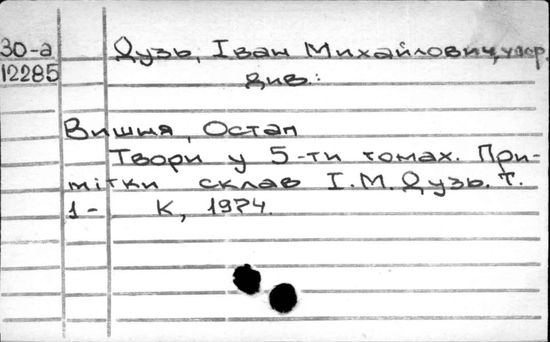 30-а Дузь, Іван Михайлович, упор.
12285 див.:
Вишня, Остап
Твори у 5-ти томах. При-
мітки склав І.М. Дузь. Т.
1- К, 1974.